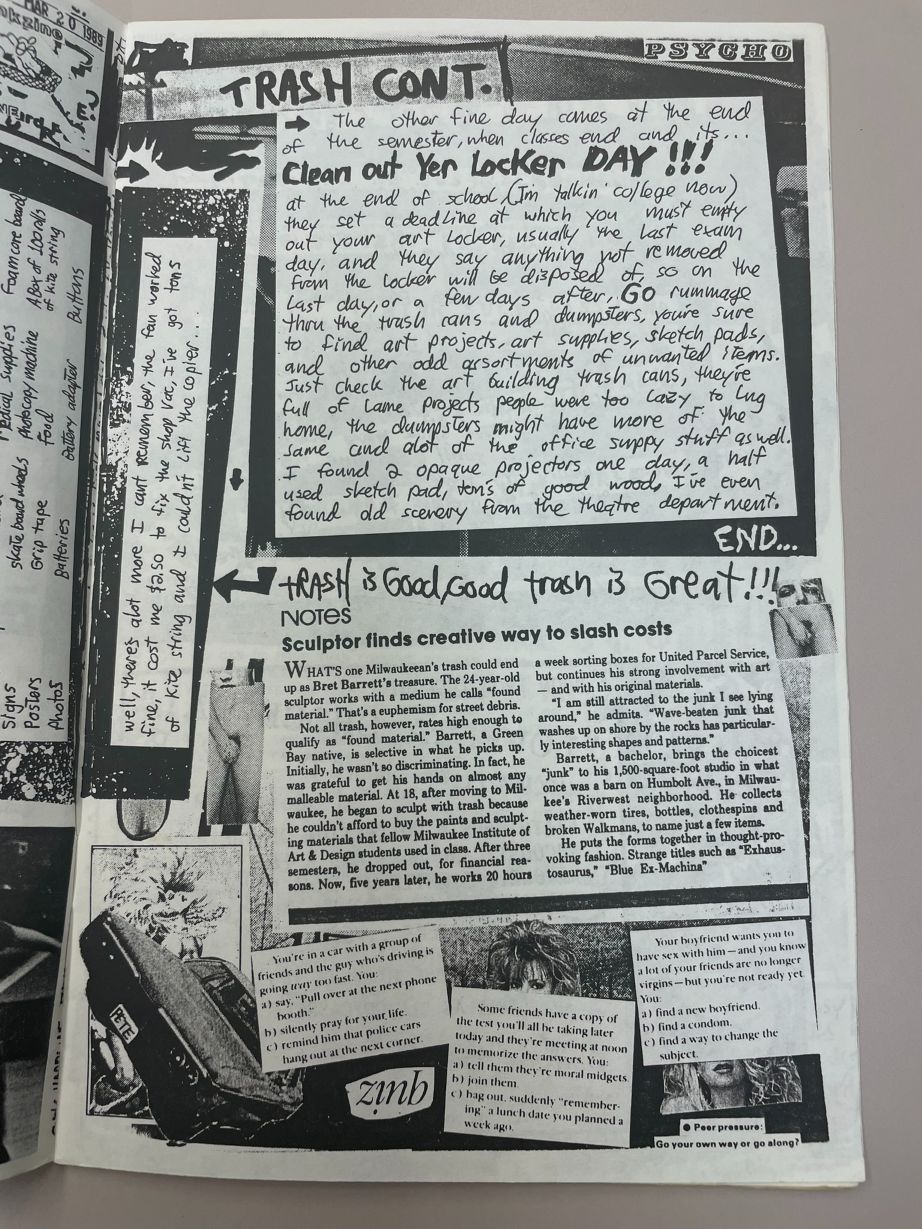 MAR 20 1989
PSYCHO
TRASH CONT.
The other fine day comes at the end
of the semester, when classes end and its...
Clean out Yer Locker DAY !!!
at the end of school, (I'm talkin' college now)
they set a deadline at which you must empty
out your art locker, usually the last exam
day, and they say anything not removed
from the locker will be disposed of, so on the
last day, or a few days after, GO rummage
thru the trash cans and dumpsters, you're sure
to find art projects, art supplies, sketch pads,
and other odd assortments of unwanted items.
Just check the art building trash cans, they're
full of lame projects people were too lazy to lug
home, the dumpsters might have more of the
same and alot of the office suppy stuff as well.
I found 2 opaque projectors one day, a half
used sketch pad, ton's of good wood, I've even
found old scenery from the theatre department.
END...
well, theres alot more I cant reunember, the fan worked
fine, it cost me $2.50 to fix the shop vac, I've got tons
of kite string and I couldn't lift the copier...
Foam core board
A Box of 100 rolls
of kite string
Buttons
photocopy machine
Food
Battery adapter
skate board wheels
Grip tape
Batteries
Signs
Posters
Photos
TRASH is Good, Good trash is Great!!!
NOTES
Sculptor finds creative way to slash costs
WHAT'S one Milwaukeean's trash could end
up as Bret Barrett's treasure. The 24-year-old
sculptor works with a medium he calls "found
material." That's a euphemism for street debris.
Not all trash, however, rates high enough to
qualify as "found material." Barrett, a Green
Bay native, is selective in what he picks up.
Initially, he wasn't so discriminating. In fact, he
was grateful to get his hands on almost any
malleable material. At 18, after moving to Mil-
waukee, he began to sculpt with trash because
he couldn't afford to buy the paints and sculpt-
ing materials that fellow Milwaukee Institute of
Art & Design students used in class. After three
semesters, he dropped out, for financial rea-
sons. Now, five years later, he works 20 hours
a week sorting boxes for United Parcel Service,
but continues his strong involvement with art
— and with his original materials.
"I am still attracted to the junk I see lying
around," he admits. "Wave-beaten junk that
washes up on shore by the rocks has particular-
ly interesting shapes and patterns."
Barrett, a bachelor, brings the choicest
"junk" to his 1,500-square-foot studio in what
once was a barn on Humbolt Ave., in Milwau-
kee's Riverwest neighborhood. He collects
weather-worn tires, bottles, clothespins and
broken Walkmans, to name just a few items.
He puts the forms together in thought-pro-
voking fashion. Strange titles such as "Exhaus-
tosaurus," "Blue Ex-Machina"
PETE
You're in a car with a group of
friends and the guy who's driving is
going way too fast. You:
a) say, "Pull over at the next phone
booth."
b) silently pray for your life.
c) remind him that police cars
hang out at the next corner.
quiz
Some friends have a copy of
the test you'll all be taking later
today and they're meeting at noon
to memorize the answers. You:
a) tell them they're moral midgets.
b) join them.
c) bag out, suddenly "remember-
ing" a lunch date you planned a
week ago.
Your boyfriend wants you to
have sex with him—and you know
a lot of your friends are no longer
virgins—but you're not ready yet.
You:
a) find a new boyfriend.
b) find a condom.
c) find a way to change the
subject.
● Peer pressure:
Go your own way or go along?